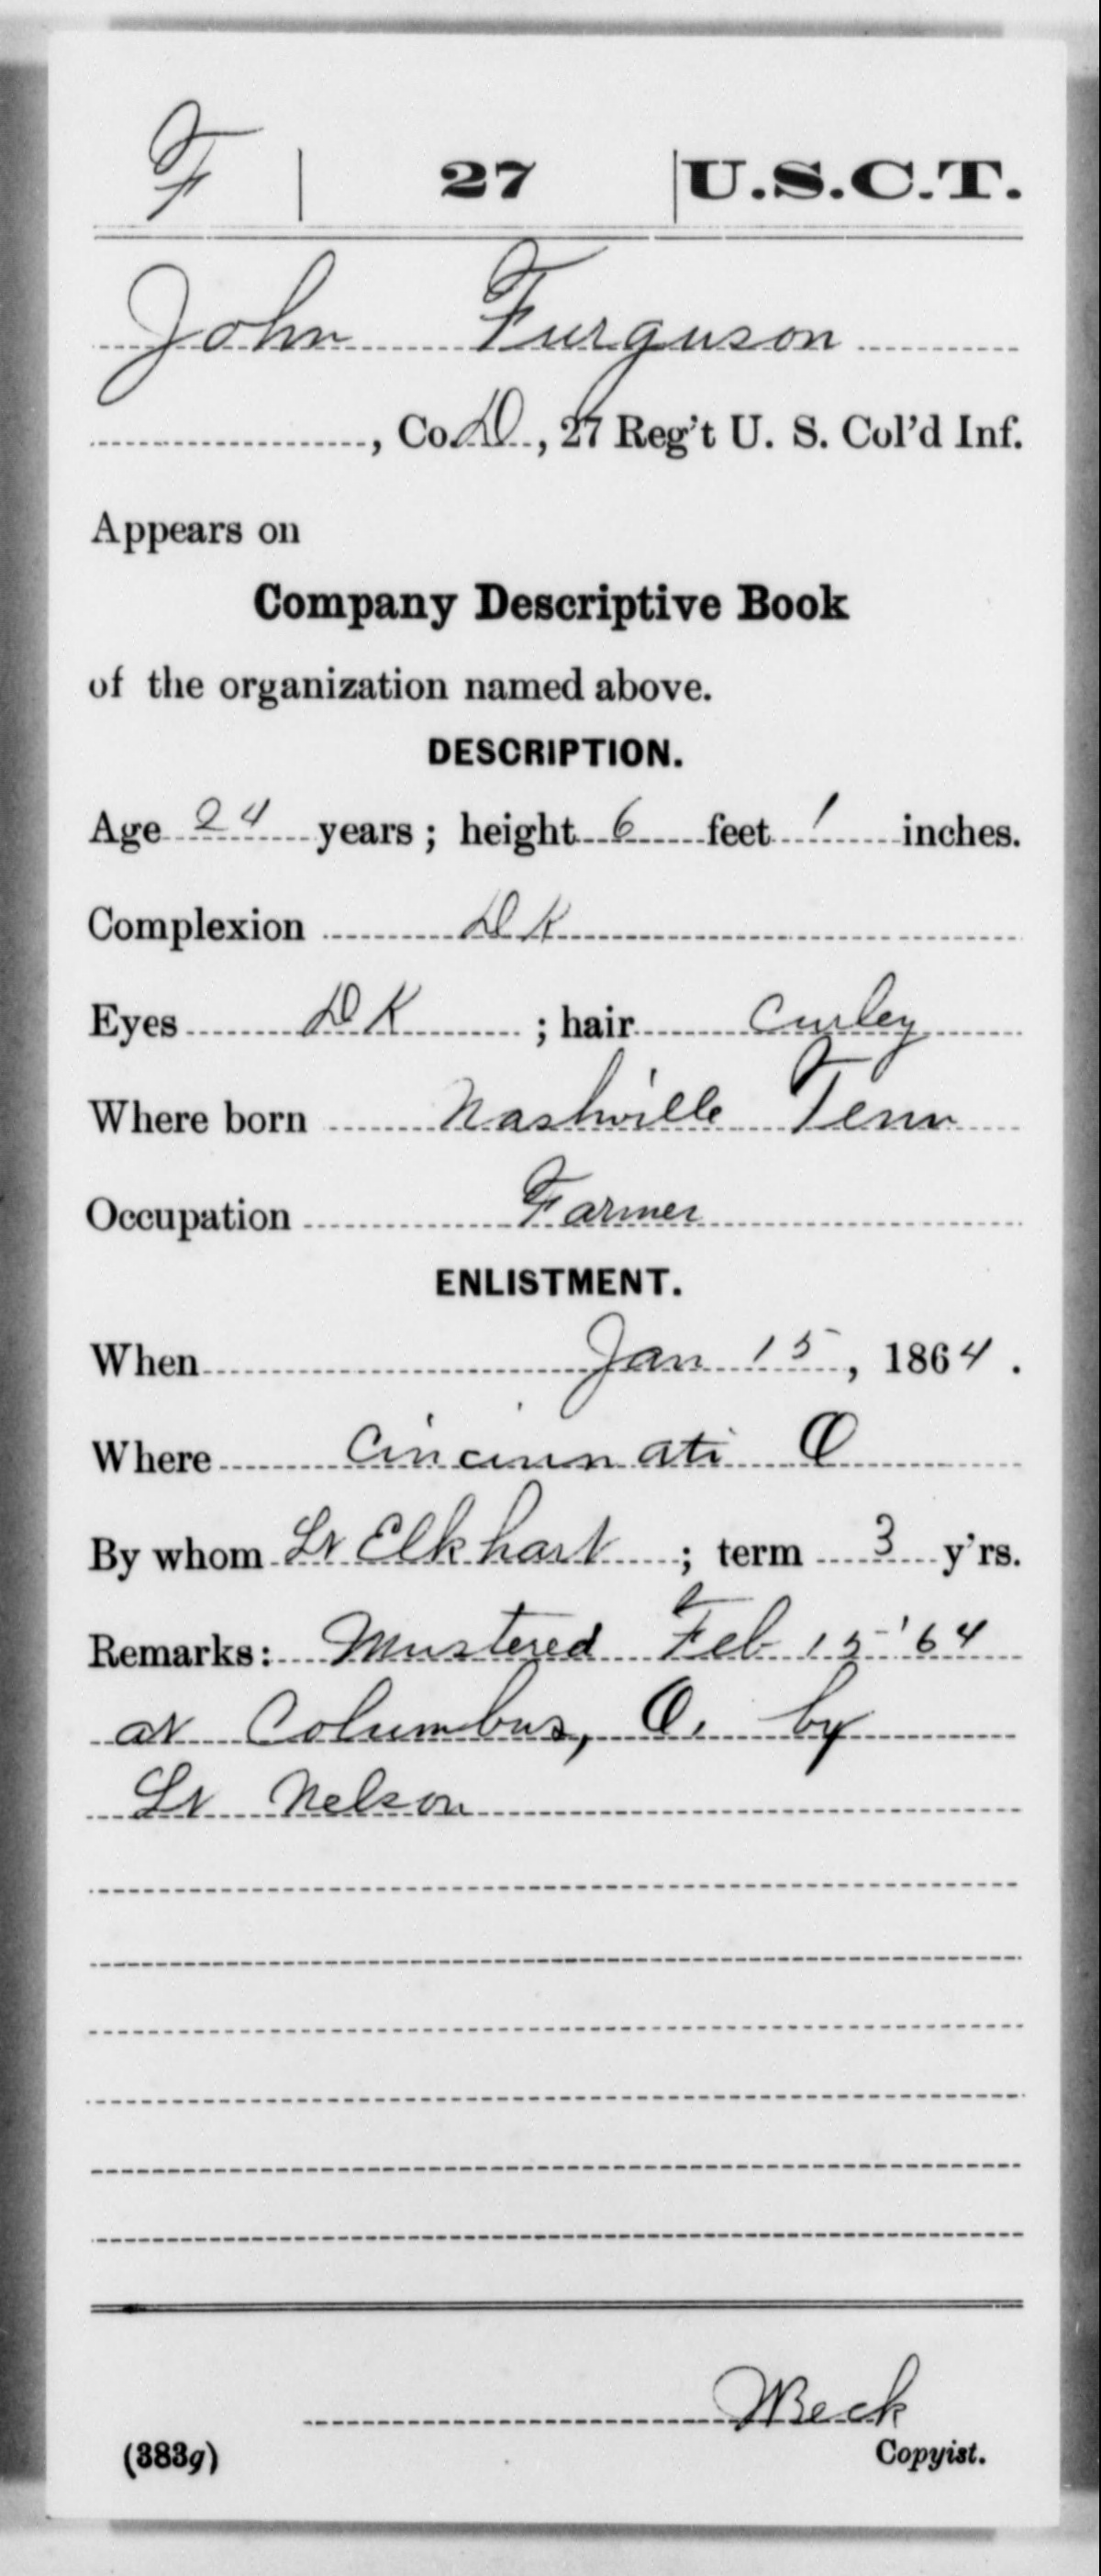 F | 27 | U.S.C.T.
John Furguson
, Co. D, 27 Reg't U. S. Col'd Inf.
Appears on
Company Descriptive Book
of the organization named above.
DESCRIPTION.
Age 24 years; height 6 feet 1 inches.
Complexion Dk
Eyes Dk; hair Curley
Where born Nashville Tenn
Occupation Farmer
ENLISTMENT.
When Jan 15, 1864.
Where Cincinnati O
By whom Lt Elkhart; term 3 y'rs.
Remarks: Mustered Feb 15 '64
at Columbus, O. by
Lt Nelson
WBeck
(383g) Copyist.